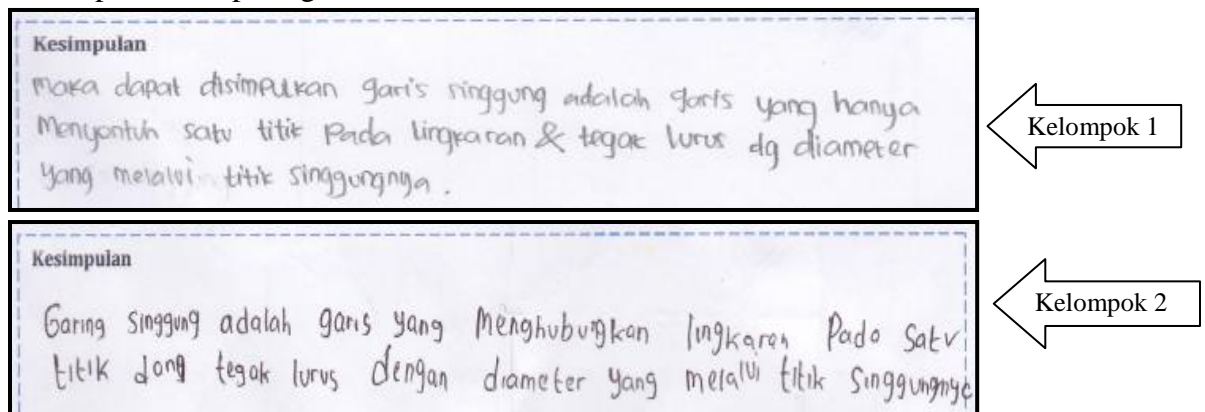 Kesimpulan
maka dapat disimpulkan garis singgung adalah garis yang hanya
Menyentuh satu titik pada lingkaran & tegak lurus dg diameter
yang melalui titik singgungnya.
Kelompok 1
Kesimpulan
Garing singgung adalah garis yang menghubungkan lingkaran pada satu
titik dang tegak lurus dengan diameter yang melalui titik singgungnya
Kelompok 2